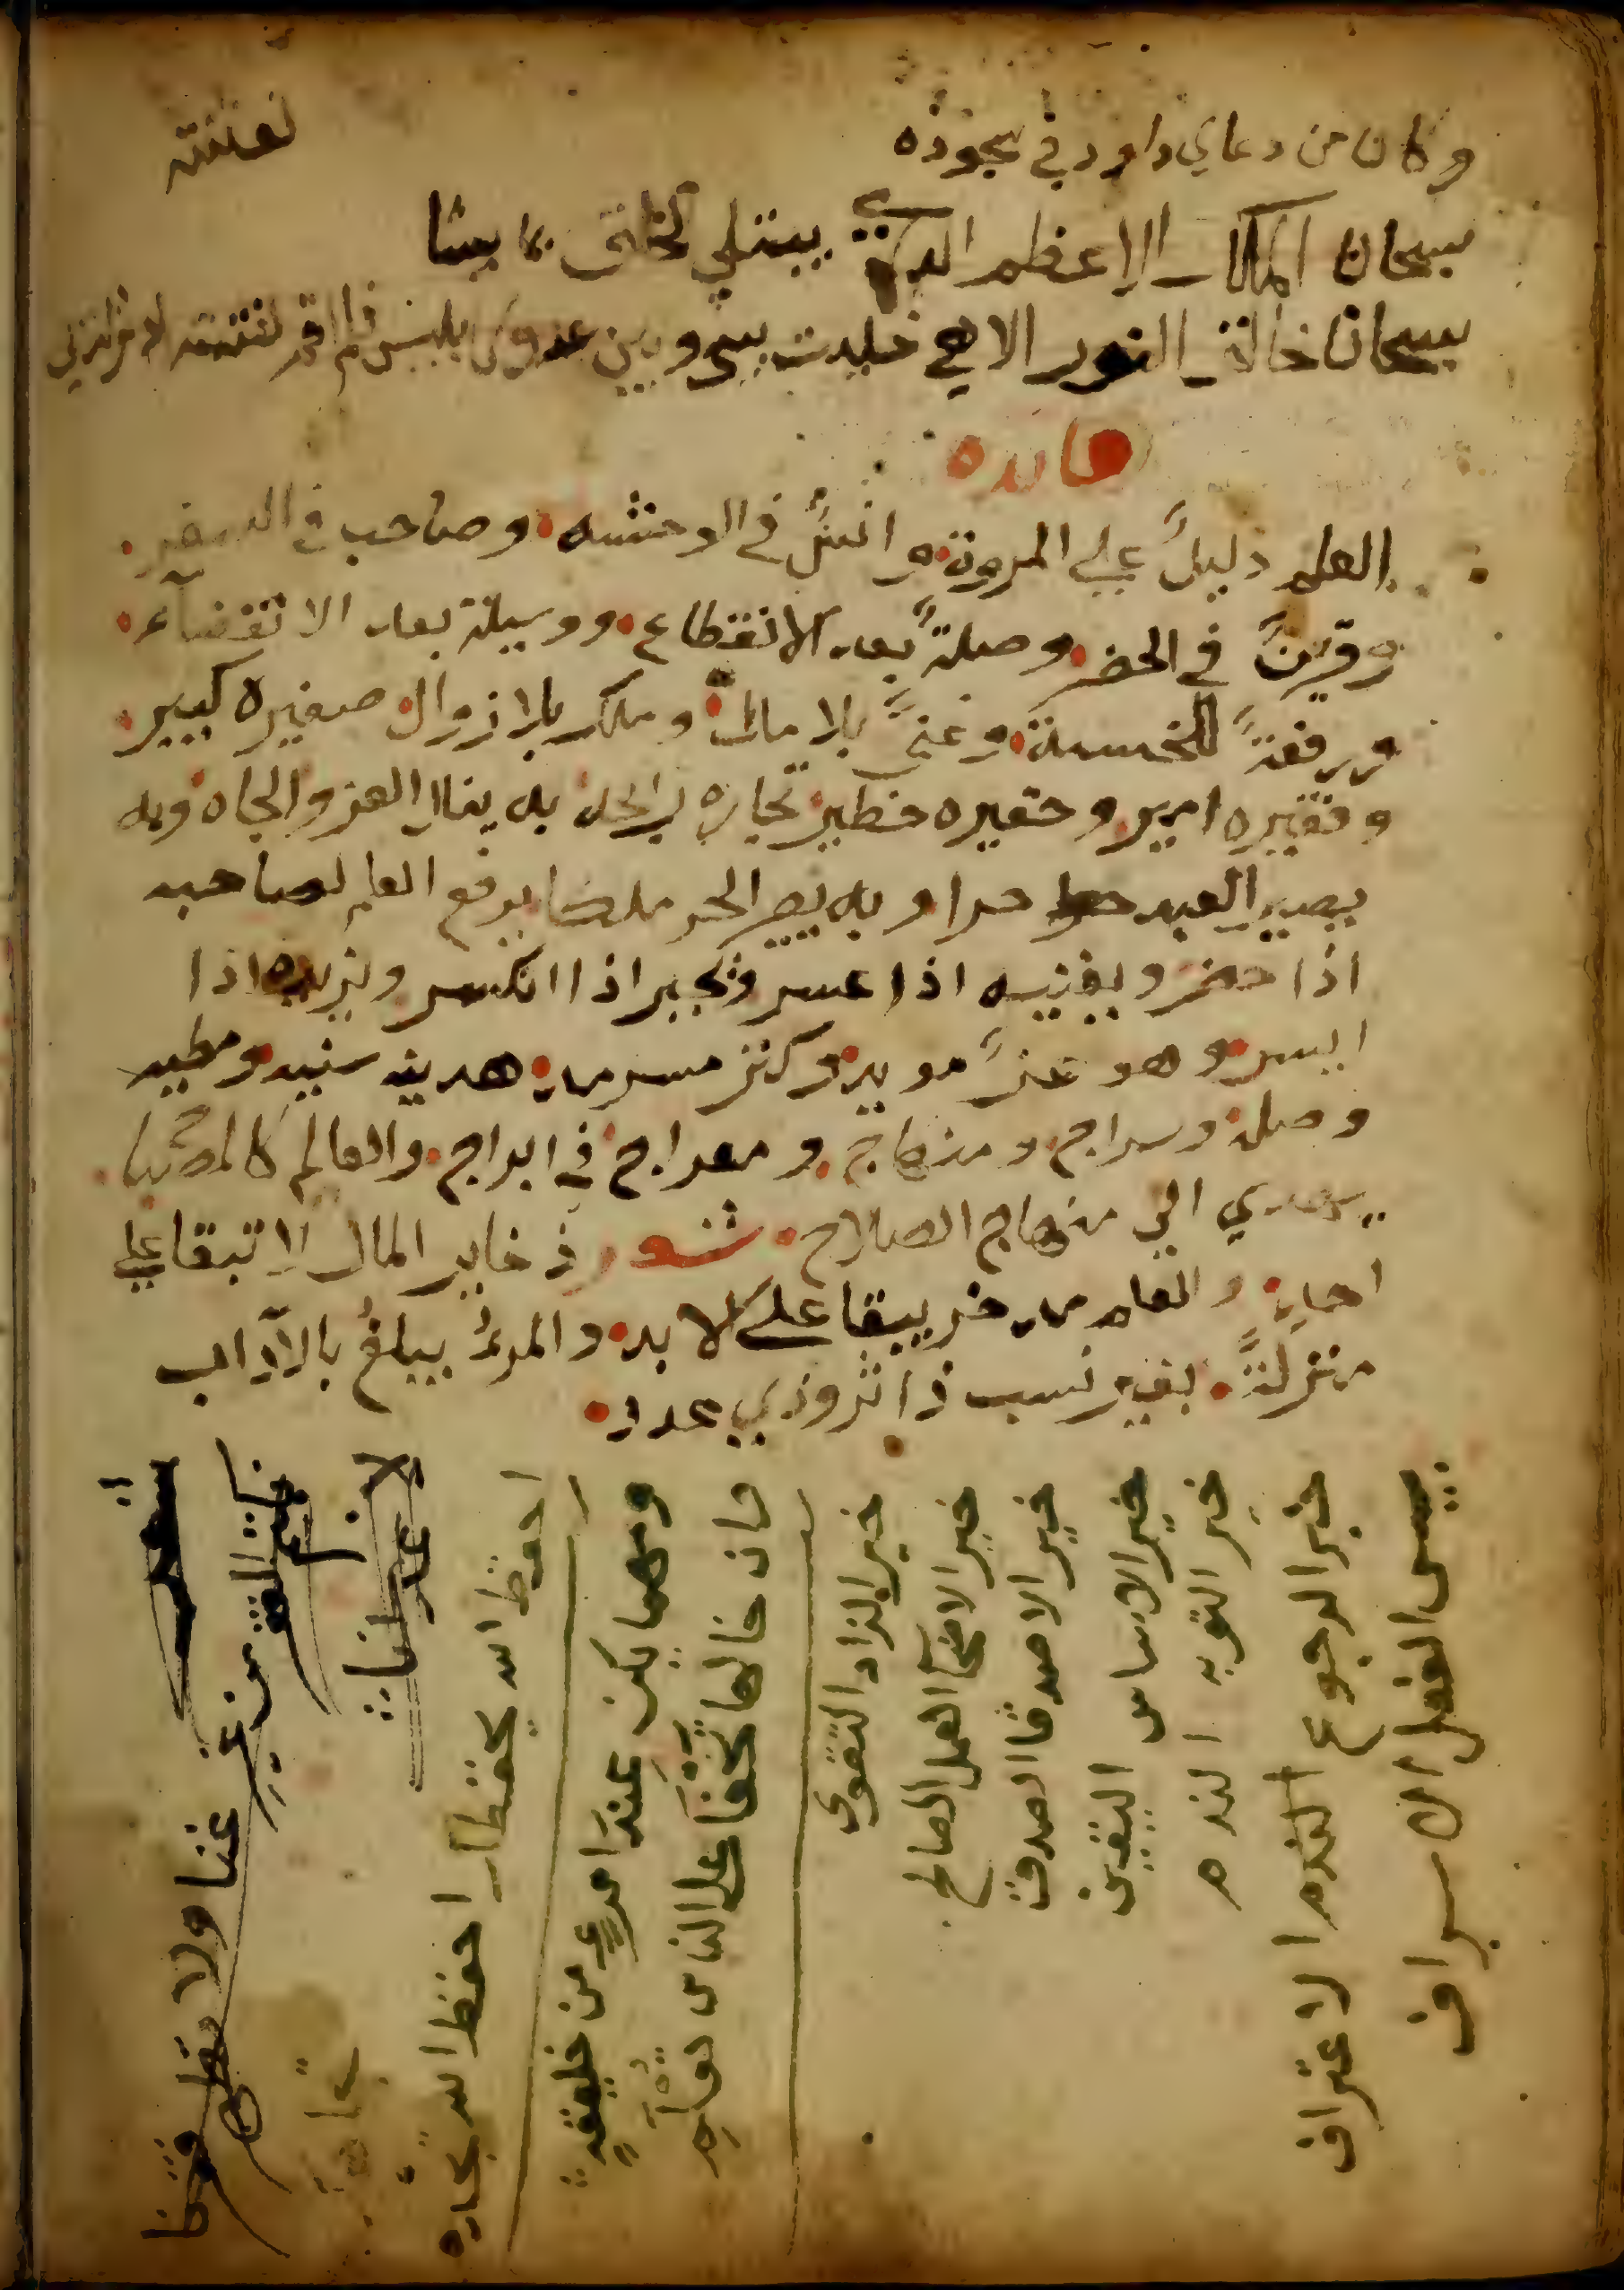 وكان من دعاي داود في سجوده
سبحان الملك الاعظم الذي يبتلي الخلق بما يشا
سبحان خالق النور الاهي خليت بيني وبين عدوي ابليس فلم اقم لفتنته
لفتنته
فائده
العلم دليلً علي المروة وانسً في الوحشه وصاحب في السفر
وقرينً في الحضر وصلةً بعد الانقطاع ووسيلة بعد الانقضآء
ورفعةً للخسة وغنىً بلا مال وملك بلا زوال صغيره كبير
وفقيره امير وحقيره خطير تجاره رابحه به ينال العز والجاه وبه
يصير العبد حرا وبه يصير الحر ملكا يرفع العلم لصاحبه
اذا حضر ويغنيه اذا عسر ويجبر اذا انكسر ويزيده اذا
ايسر وهو عزً مويد وكنز مسرمد هديه سنيه ومطيه
وصله وسراج ومنهاج ومعراج في ابراج والعالم كالمصباح
يهدي الي منهاج الصلاح شعر ذخاير المال لا تبقا علي
احد والعلم تدخر يبقا على الابد والمرئ يبلغ بالآداب
منزلةً بغير نسب ذا ثروذي عدد
بيس الفعل الاسراف
خير الرجوع الندم الاعتراف
خير التوبه الندم
خير الاساس اليقين
خير الاصدقا الصدق
خير الاخآ العمل الصالح
خير الزاد التقوى
ومهما يكن عند امرءٍ من خليقةٍ
وان خالها تخفا على الناس تعلم
احفظ الله يحفظك احفظ الله تجده